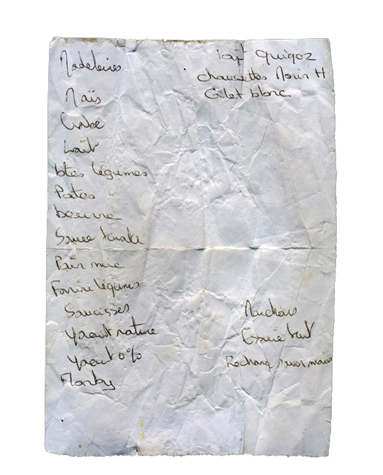 Madeleines
Maïs
Lait
btes légumes
Pates
beurre
Sauce tomate
Pain mie
Farine légumes
Saucisses
Yaourt nature
Yaourt 0%
Flamby
Lait Guigoz
chaussettes Noir H
Gilet blanc
Mouchoirs
Essuie tout
Recharg